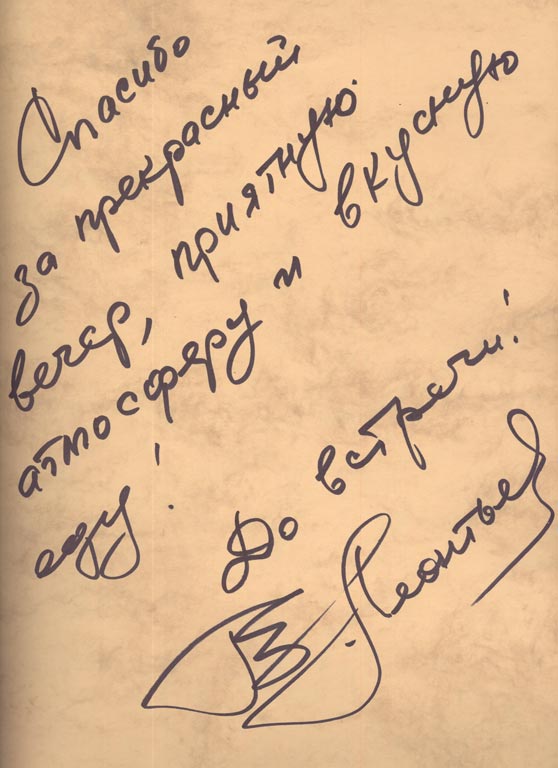 Спасибо
за прекрасный
вечер, приятную
атмосферу и вкусную
еду!
До встречи!
В. Леонтьев